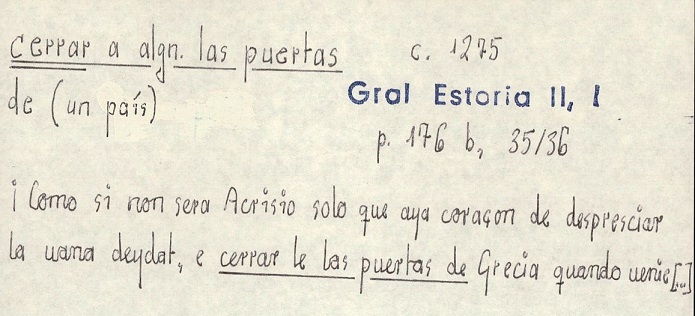 cerrar a algn. las puertas
de (un país)
c. 1275
Gral Estoria II, I
p. 176 b, 35/36
¡Como si non sera Acrisio solo que aya coraçon de despresciar
la uana deydat, e cerrar le las puertas de Grecia quando uenie[...]